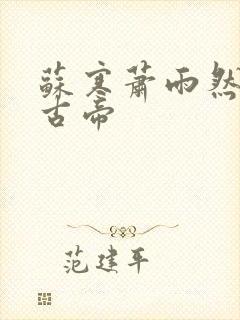 蘇寒蕭雨然
古帝
范建平